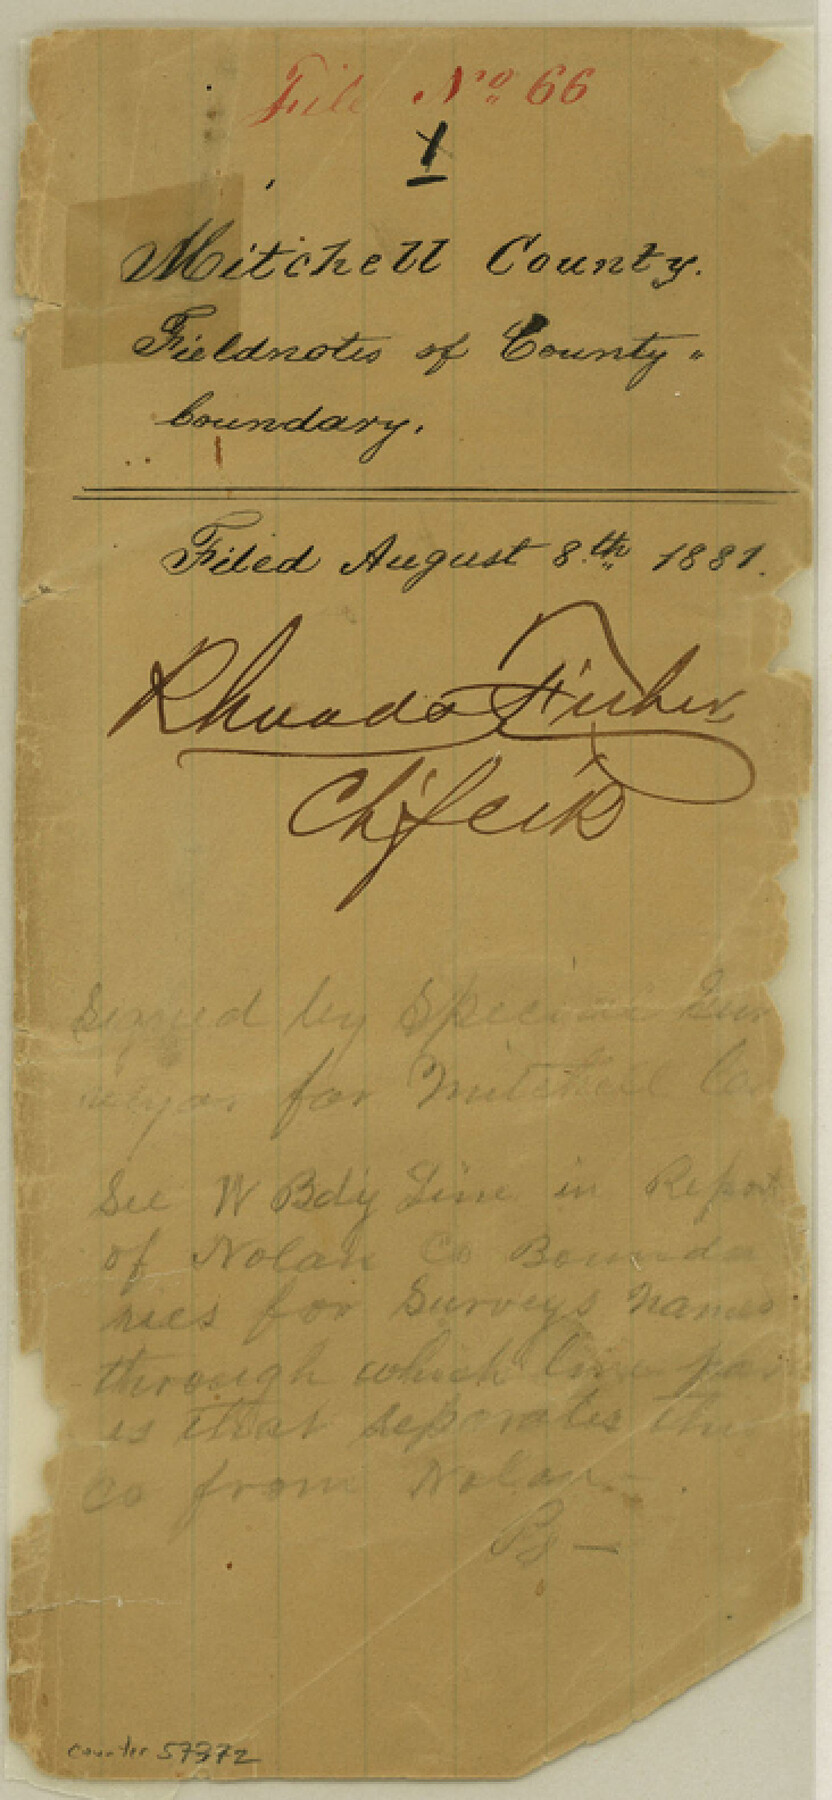 File No 66
1
Mitchell County.
Fieldnotes of County
boundary.
Filed August 8th 1881.
Rhoads Fisher
Ch. Clk
Signed by Special Sur
veyor for Mitchell Co
See W Bdy Line in Report
of Nolan Co Bounda
ries for Surveys names
through which line
is that separates this
Co from Nolan
counter 57372